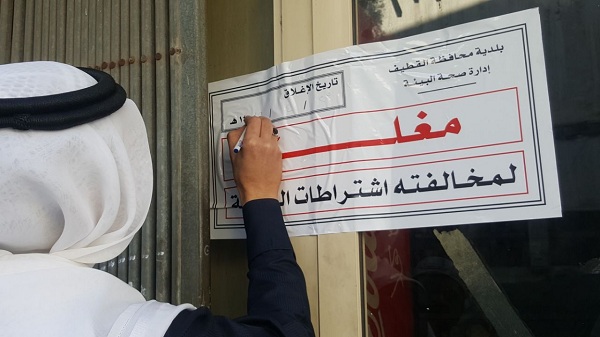 بلدية محافظة القطيف
إدارة صحة البيئة
تاريخ الإغلاق
/ /
مغلـ
لمخالفته اشتراطات